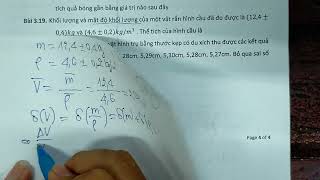 tích quả bóng gần bằng giá trị nào sau đây
Bài 3.19. Khối lượng và mật độ khối lượng của một vật rắn hình cầu đã đo được là (12,4 ±
0,4)kg và (4,6 ± 0,2)kg/m³. Thể tích của hình cầu là
m = 12,4 ± 0,4
ật hình trụ bằng thước kẹp có du xích thu được các kết quả
ρ = 4,6 ± 0,2
28cm, 5,29cm, 5,30cm, 5,28cm, 5,27cm. Bỏ qua sai số
V = m/ρ = 12,4/4,6
δ(V) = δ(m/ρ) = δ(m)
Page 4 of 4
= ΔV